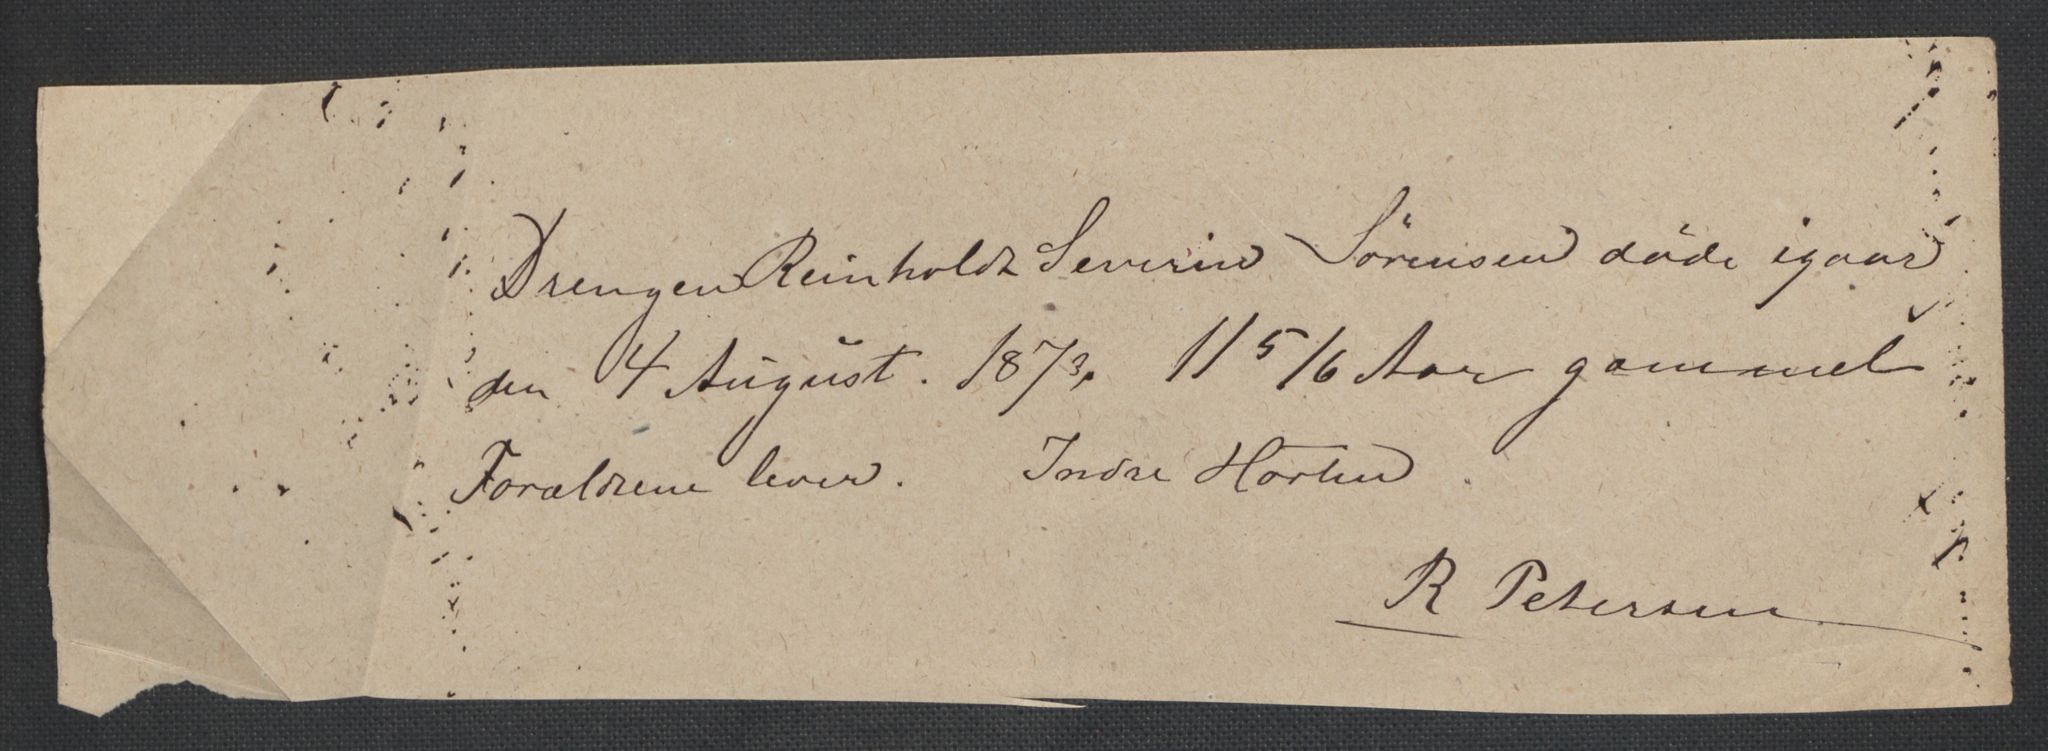 Drengen Reinholdt Severin Sörensen döde igaar
den 4 August. 1873. 11 5/6 Aar gammel
Forældrene lever. Indre Horten
R Petersen